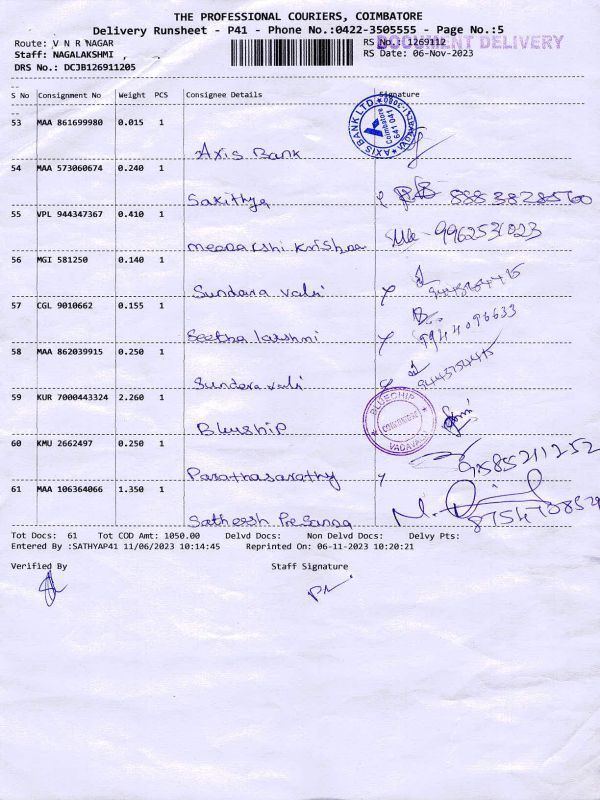 THE PROFESSIONAL COURIERS, COIMBATORE
Delivery Runsheet - P41 - Phone No.:0422-3505555 - Page No.:5
Route: V N R NAGAR RS No.: 1269112 DOCUMENT DELIVERY
Staff: NAGALAKSHMI , RS Date: 06-Nov-2023
DRS No.: DCJB126911205
S No Consignment No Weight PCS Consignee Details Signature
53 MAA 861699980 0.015 1
Axis Bank
AXIS BANK LTD. Coimbatore 641 041
54 MAA 573060674 0.240 1
Sakithya 8883828560
55 VPL 944347367 0.410 1
meenakshi Krishna 9962531023
56 MGI 581250 0.140 1
Sundara valli
57 CGL 9010662 0.155 1
Seetha lakshmi 9944096633
58 MAA 862039915 0.250 1
Sundara valli
59 KUR 7000443324 2.260 1
Blueship
BLUECHIP COIMBATORE VADAVALLI
60 KMU 2662497 0.250 1
Parathasarathy 9585211252
61 MAA 106364066 1.350 1
Satheesh Prasanna
Tot Docs: 61 Tot COD Amt: 1050.00 Delvd Docs: Non Delvd Docs: Delvy Pts:
Entered By :SATHYAP41 11/06/2023 10:14:45 Reprinted On: 06-11-2023 10:20:21
Verified By Staff Signature